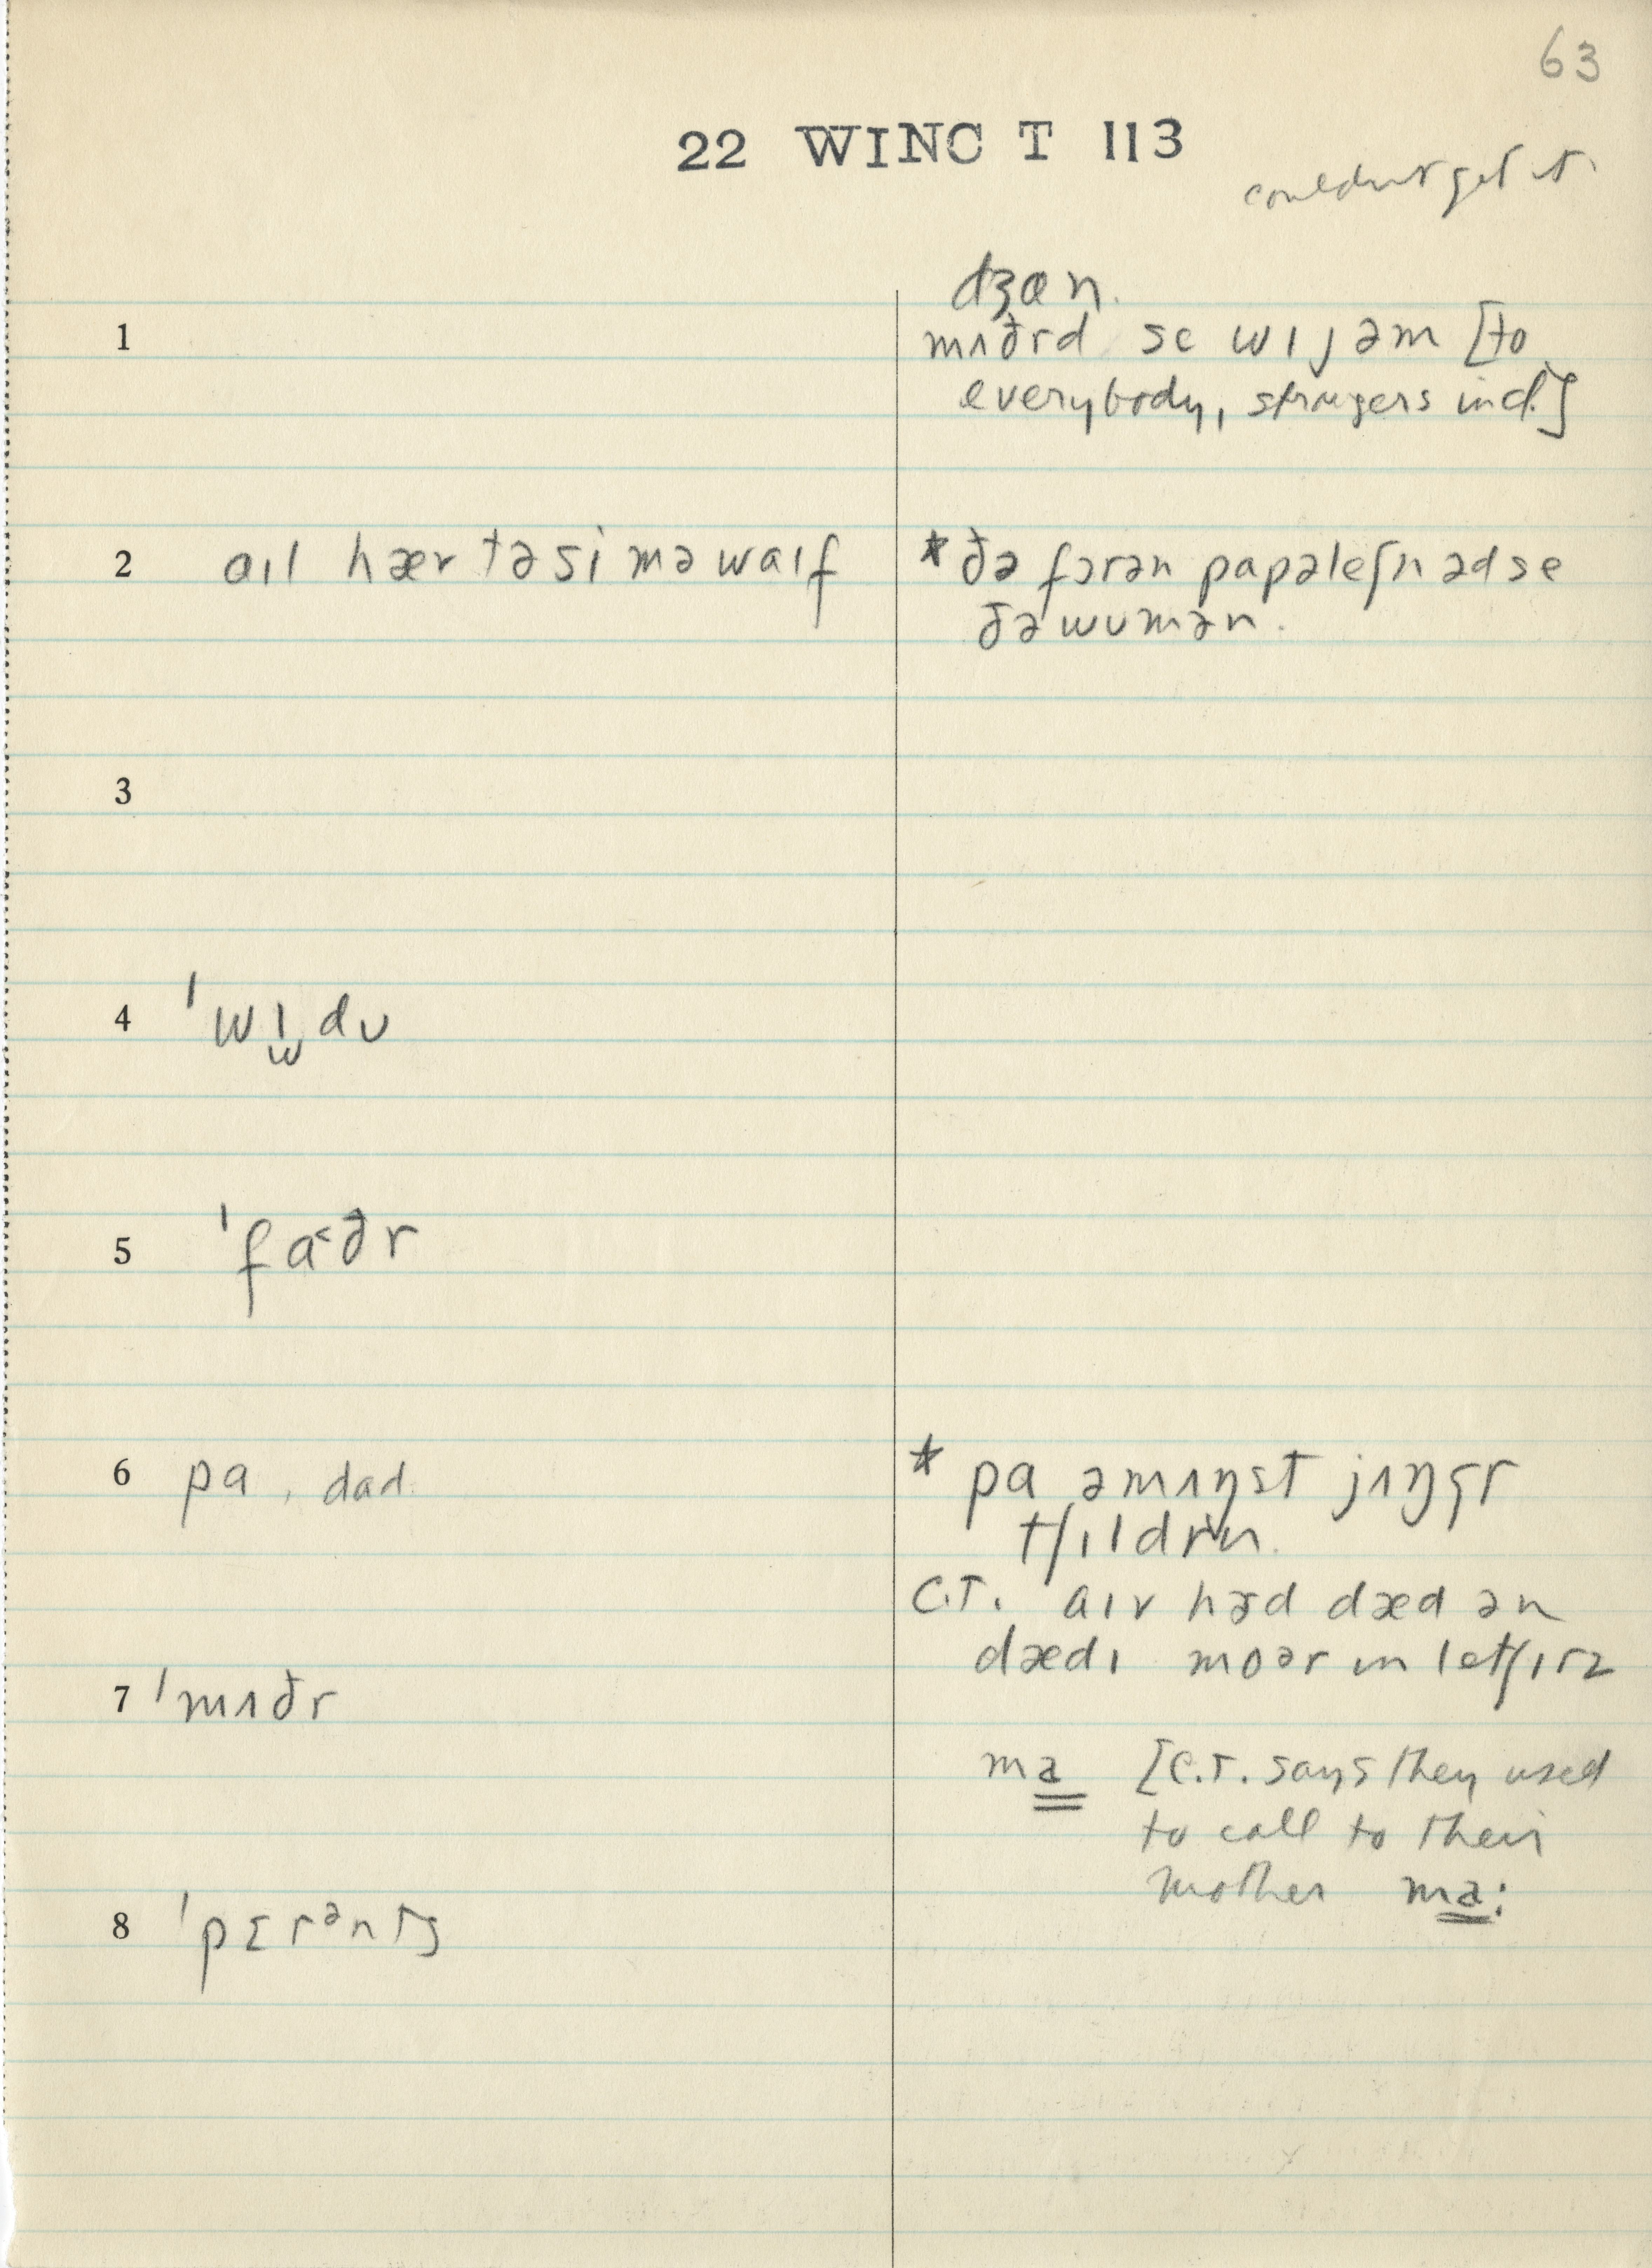 63
22 WINC T 113
couldnt get it
dʒæn.
1 mʌðrd se wɪjəm [to
everybody, strangers incl.]
2 aɪl hær tə si mə waɪf
* ðə fərən papəleʃn əd se
ðə wumən.
3
4 ˈwɪdu
5 ˈfa˂ðr
6 pa, dad.
* pa əmʌŋst jʌŋgr
tʃɪldrn.
C.T. aɪv həd dæd ən
dædɪ moər in letʃɪrz
7 ˈmʌðr
ma [C.T. says they used
to call to their
mother ma:
8 ˈpɛrənts